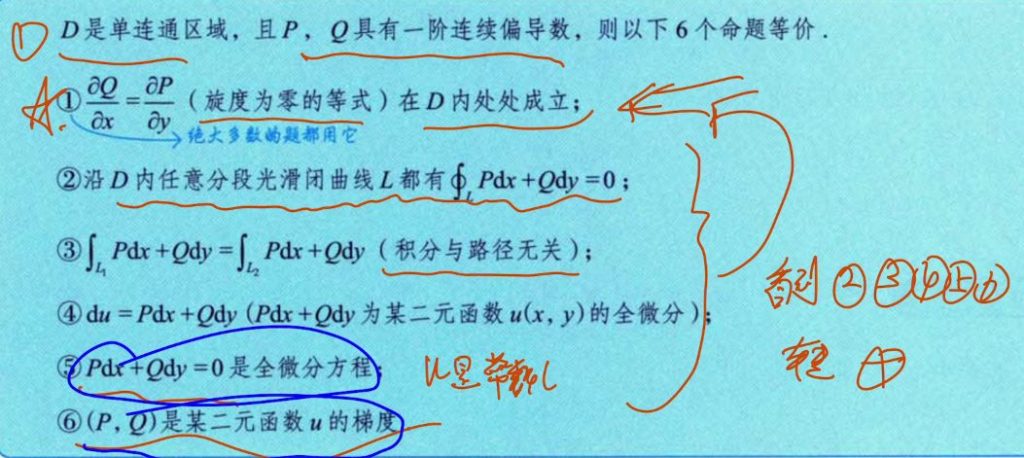 ① D是单连通区域，且P，Q具有一阶连续偏导数，则以下6个命题等价．
①∂Q/∂x=∂P/∂y（旋度为零的等式）在D内处处成立；
绝大多数的题都用它
②沿D内任意分段光滑闭曲线L都有∮_L Pdx+Qdy=0；
③∫_{L₁} Pdx+Qdy=∫_{L₂} Pdx+Qdy（积分与路径无关）；
看到 ②③④⑤⑥
④du=Pdx+Qdy(Pdx+Qdy为某二元函数u(x, y)的全微分)；
⑤Pdx+Qdy=0是全微分方程；
u是常数
⑥(P, Q)是某二元函数u的梯度